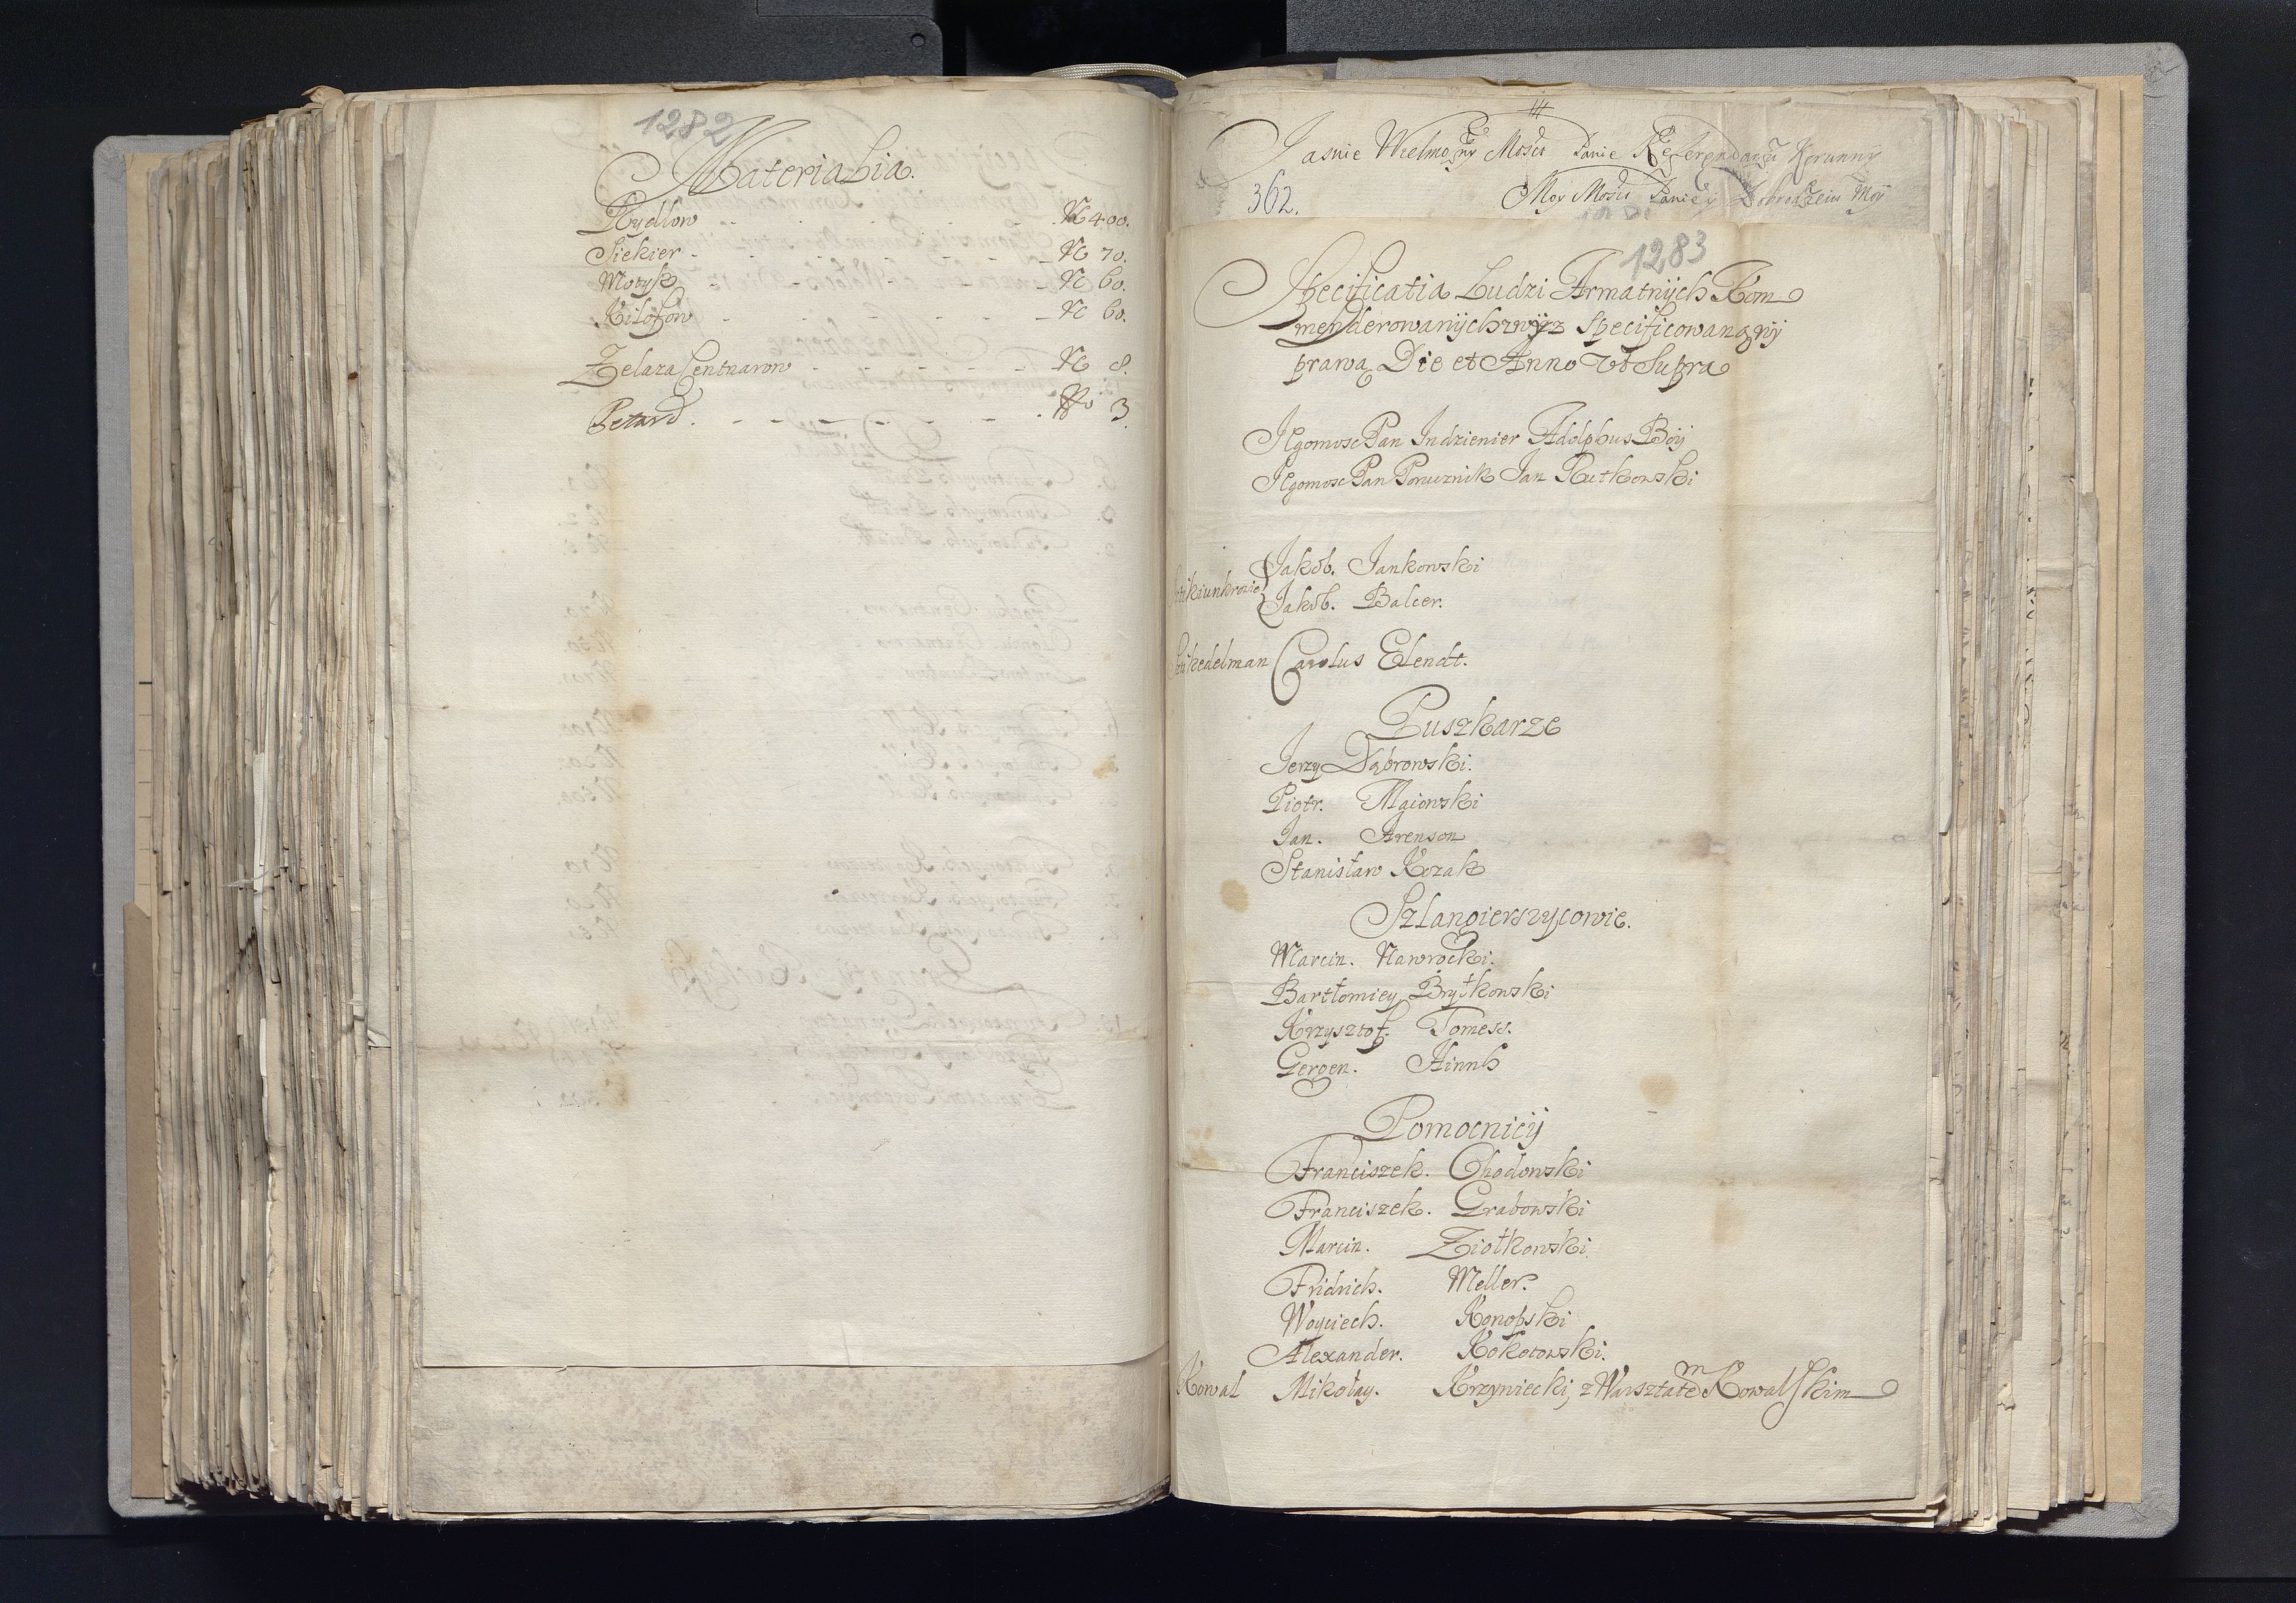 1282
Materialia.
Rydlow - - - - - - N 400.
Siekier - - - - - - N 70.
Motyk - - - - - - N 60.
Kilofow - - - - - - N 60.
Zelaza Centnarow - - - - - - N 8.
Petard. - - - - - - No 3.
Jasnie Wielmozny Mosci Panie Referendarzu Korunny
362. Moy Mosci Panie y Dobrodzieiu Moy
1283
Specificatia Ludzi Armatnÿch Kom
menderowanÿch zwÿz Specificowaną wÿ
prawą Die et Anno Vt Supra
Jegomosc Pan Indzienier Adolphus Boÿ
Jegomosc Pan Poruznik Jan Rutkowski
Jakób. Jankowski
Sztikiunkrowie
Jakób. Balcer.
Sztikedelman Carolus Elendt.
Puszkarze
Jerzy Dąbrowski.
Piotr. Mgionski
Jan. Arenson
Stanisław Kozak
Szlangierszycowie.
Marcin. Nawrocki.
Bartłomiey Brytkowski
Krzysztof. Tomess.
Gergen. Hinnh
Pomocnicÿ
Franciszek. Chodowski
Franciszek. Grabowski
Marcin. Ziołkowski.
Fridrich. Meller.
Woyciech. Konopski
Alexander. Kokotowski.
Kowal Mikołay. Krzyniecki, z Warsztatem Kowalskim